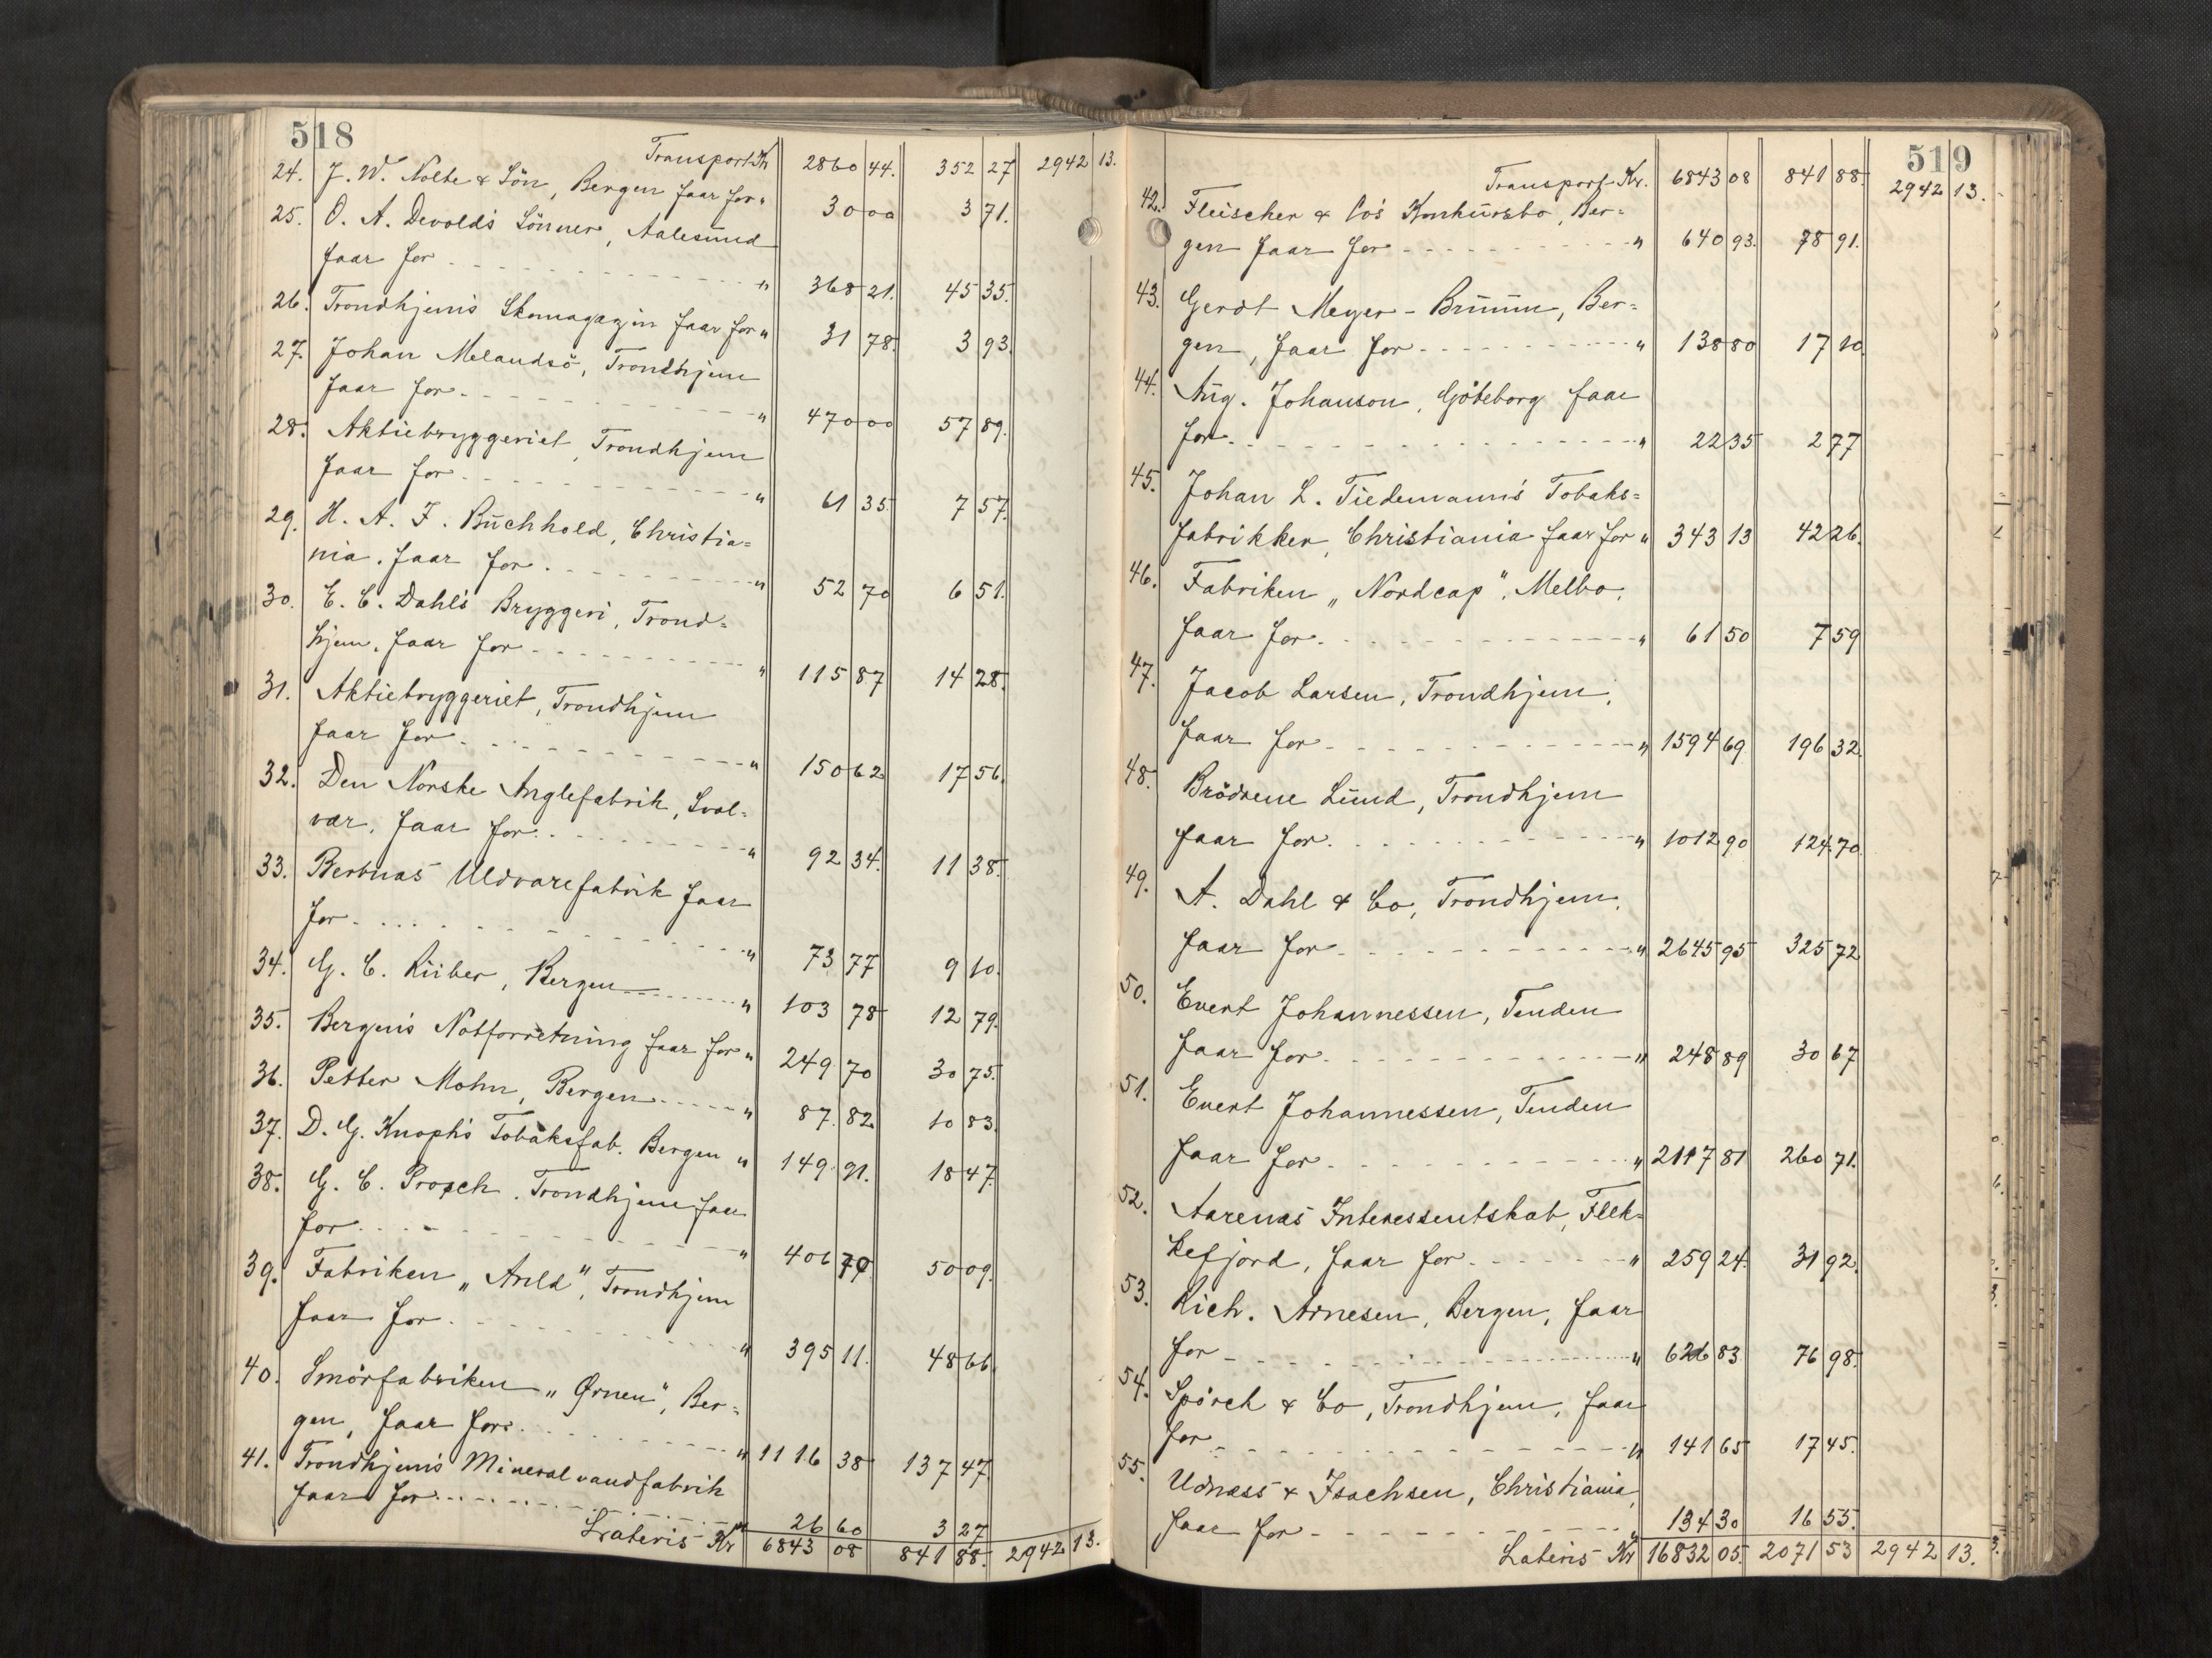 518
Transport Kr 2860 44. 352 27 2942 13.
24. J. W. Nolte & Sön, Bergen faar for " 30 00 3 71.
25. O. A. Devold's Sönner, Aalesund
faar for " 368 21. 45 35.
26. Trondhjem's Skomagazin faar for " 31 78. 3 93.
27. Johan Melandsö, Trondhjem
faar for " 470 00 57 89.
28. Aktiebryggeriet, Trondhjem
faar for " 61 35. 7 57.
29. H. A. F. Buchhold, Christia=
nia, faar for " 52 70 6 51.
30. E. C. Dahl's Bryggeri, Trond=
hjem, faar for " 115 87 14 28.
31. Aktiebryggeriet, Trondhjem
faar for " 150 62 17 56.
32. Den Norske Anglefabrik, Svol=
vær, faar for " 92 34. 11 38.
33. Berbuas Uldvarefabrik faar
for " 73 77 9 10.
34. G. C. Riiber, Bergen " 103 78 12 79.
35. Bergen's Notforretning faar for " 249 70 30 75.
36. Petter Mohn, Bergen " 87 82 10 83.
37. D. G. Knoph's Tobaksfab. Bergen " 149 91. 18 47.
38. G. C. Prosch, Trondhjem faar
for " 406 70 50 09.
39. Fabriken „Arild", Trondhjem
faar for " 395 11. 48 66.
40. Smörfabriken „Ørnen", Ber=
gen, faar for " 1116 38 137 47.
41. Trondhjem's Mineralvandfabrik
faar for " 26 60 3 27
Lateris Kr 6843 08 841 88. 2942 13.
519
Transport Kr. 6843 08 841 88. 2942 13.
42. Fleischer & Co's Konkursbo, Ber=
gen faar for " 640 93. 78 91.
43. Gerdt Meyer-Bruun, Ber=
gen, faar for " 138 80 17 10.
44. Aug. Johanson, Göteborg faar
for " 22 35 2 77
45. Johan L. Tiedemann's Tobaks=
fabrikker, Christiania faar for " 343 13 42 26.
46. Fabriken „Nordcap", Melbo,
faar for " 61 50 7 59
47. Jacob Larsen, Trondhjem,
faar for " 1594 69. 196 32.
48. Brödrene Lund, Trondhjem
faar for " 1012 90 124 70
49. A. Dahl & Co, Trondhjem,
faar for " 2645 95 325 72
50. Evert Johannessen, Tenden
faar for " 248 89 30 67
51. Evert Johannessen, Tenden
faar for " 2117 81 260 71.
52. Aarenas Interessentskab, Flek=
kefjord, faar for " 259 24. 31 92.
53. Rich. Arnesen, Bergen, faar
for " 626 83 76 98.
54. Spörck & Co, Trondhjem, faar
for " 141 65 17 45.
55. Udnæss & Isachsen, Christiania,
faar for " 134 30 16 55.
Lateris Kr 16832 05. 2071 53 2942 13.